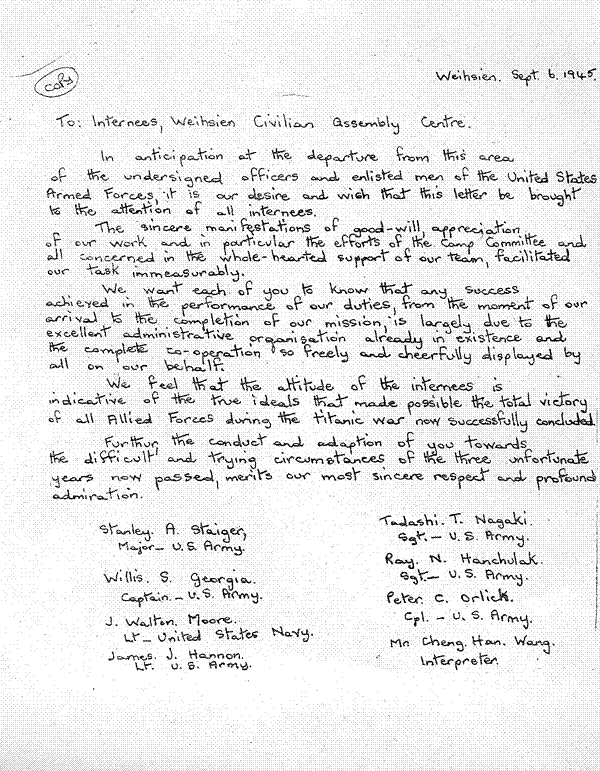 copy
Weihsien. Sept. 6. 1945.
To: Internees, Weihsien Civilian Assembly Centre.
In anticipation at the departure from this area
of the undersigned officers and enlisted men of the United States
Armed Forces, it is our desire and wish that this letter be brought
to the attention of all internees.
The sincere manifestations of good-will, appreciation
of our work and in particular the efforts of the Camp Committee and
all concerned in the whole-hearted support of our team, facilitated
our task immeasurably.
We want each of you to know that any success
achieved in the performance of our duties, from the moment of our
arrival to the completion of our mission, is largely due to the
excellent administrative organisation already in existence and
the complete co-operation so freely and cheerfully displayed by
all on our behalf.
We feel that the attitude of the internees is
indicative of the true ideals that made possible the total victory
of all Allied Forces during the titanic war now successfully concluded.
Furthur, the conduct and adaption of you towards
the difficult and trying circumstances of the three unfortunate
years now passed, merits our most sincere respect and profound
admiration.
Stanley. A. Staiger,
Major - U.S. Army.
Willis. S. Georgia.
Captain. - U.S. Army.
J. Walton. Moore.
Lt - United States Navy.
James. J. Hannon.
Lt. U.S. Army.
Tadashi. T. Nagaki.
Sgt. - U.S. Army.
Ray. N. Hanchulak.
Sgt. - U.S. Army.
Peter. C. Orlick.
Cpl. - U.S. Army.
Mr. Cheng. Han. Wang.
Interpreter.